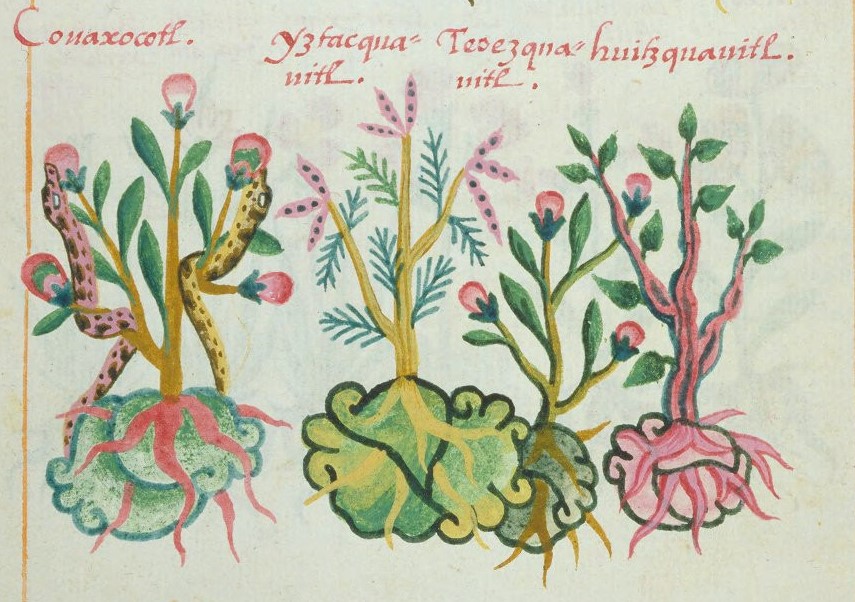 Couaxocotl.
Yztacqua=
uitl.
Teoezqua=
uitl.
huitzquauitl.